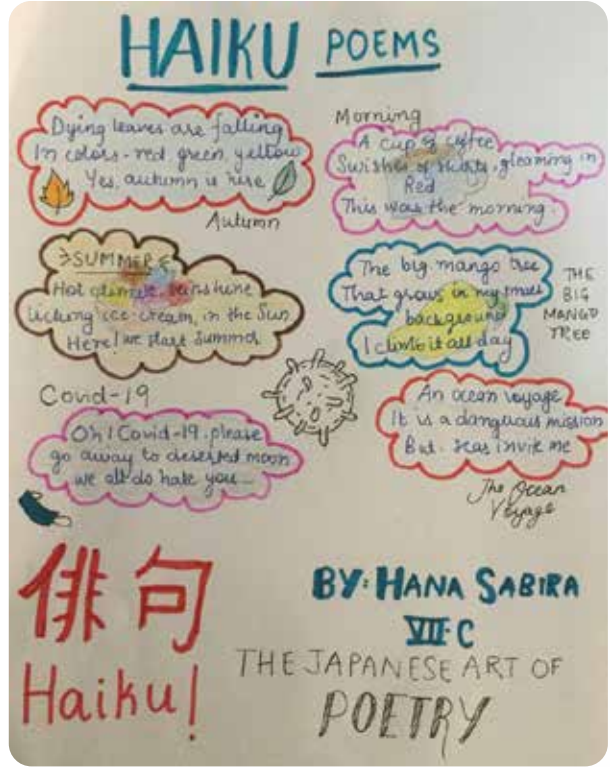 HAIKU POEMS
Dying leaves are falling
In colors - red, green, yellow
Yes, autumn is rise
Autumn
Morning
A cup of coffee
Swishes of skirts, gleaming in
Red
This was the morning.
SUMMER
Hot climate, sunshine
Licking ice-cream, in the Sun
Here! we start Summer
The big mango tree
That grows in my
background
I climb it all day
THE
BIG
MANGO
TREE
Covid-19
Oh! Covid-19, please
go away to deserted moon
we all do hate you...
An ocean voyage
It is a dangerous mission
But seas invite me
The Ocean
Voyage
俳句
Haiku!
BY: HANA SABIRA
VII-C
THE JAPANESE ART OF
POETRY